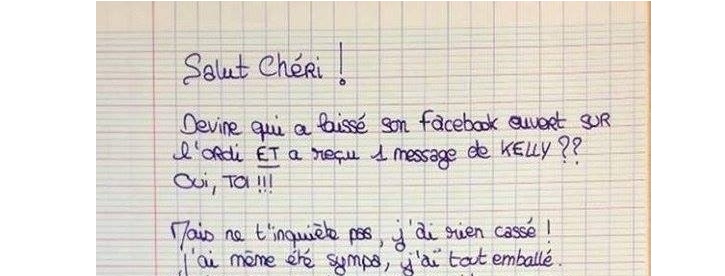 Salut Chéri !
Devine qui a laissé son facebook ouvert SUR
l'ordi ET a reçu 1 message de KELLY ??
Oui, TOI !!!
Mais ne t'inquiète pas, j'ai rien cassé !
J'ai même été sympa, j'ai tout emballé.